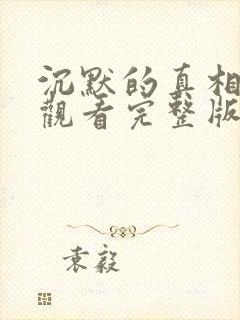 沉默的真相
觀看完整版
袁毅